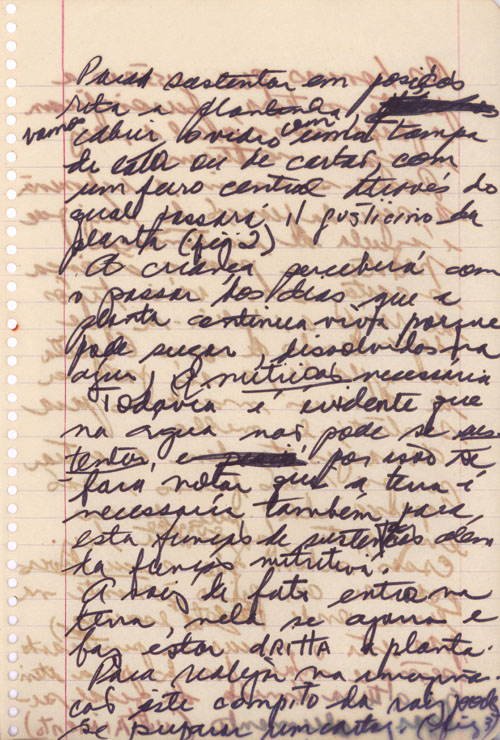 Para sustentar em posição
rita a plantina,
vamos cobrir o vidro com uma tampa
de cola ou de cartão, com
um furo central através do
qual passará, il fusticino da
planta (fig 2)
A criança perceberá com
o passar dos dias que a
planta continua viva porque
pode sugar, dissolvidos na
agua, necessaria
Todavia é evidente que
na agua nao pode se sus-
tentar, e por isso se
fara notar que a terra é
necessaria também para
esta função de sustentos alem
da função nutritiva.
A raiz de fato entra na
terra, nela se agarra e
faz estar dRITTA a planta.
Para realçar na imagina-
cao este compito da raiz pode
se preparar um cartaz. (fig 3)